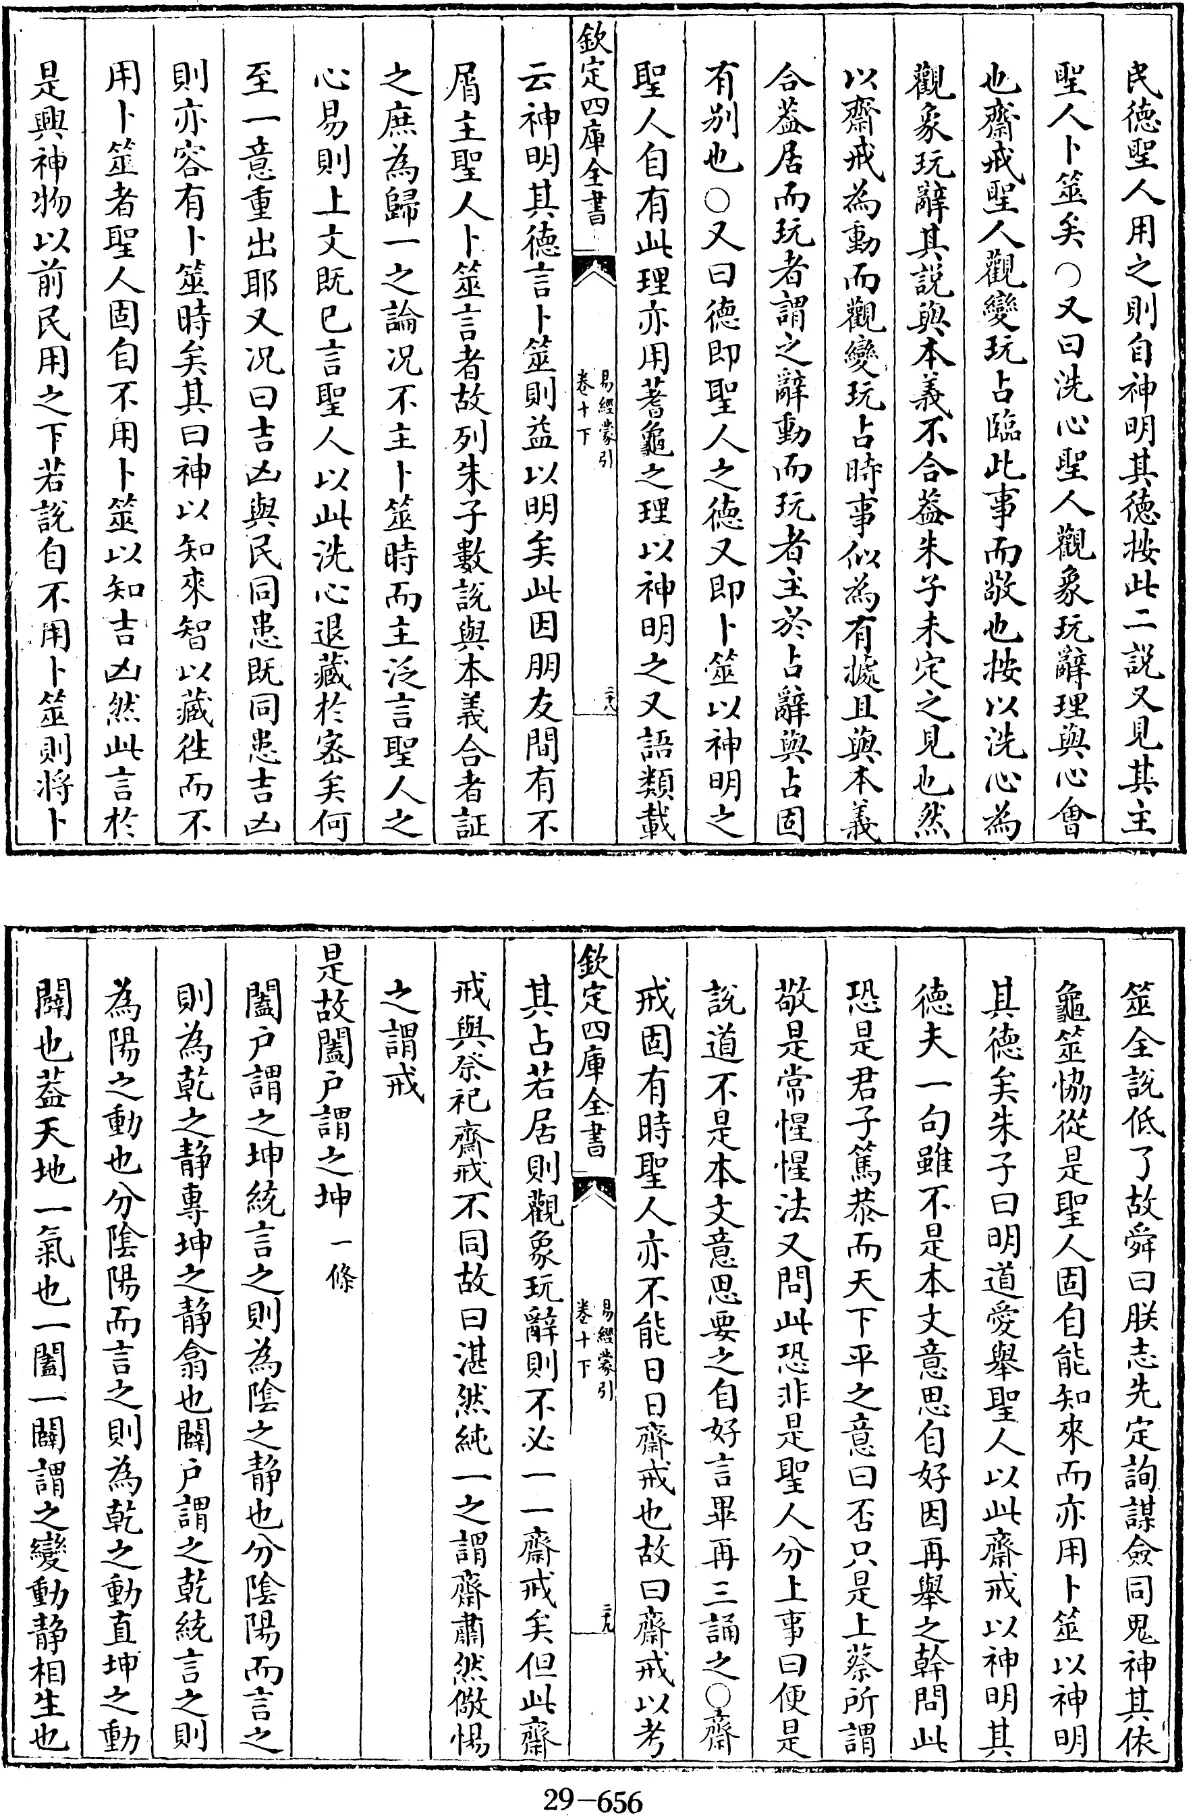 民德聖人用之則自神明其德按此二説又見其主
聖人卜筮矣○又曰洗心聖人觀象玩辭理與心會
也齋戒聖人觀變玩占臨此事而敬也按以洗心為
觀象玩辭其説與本義不合蓋朱子未定之見也然
以齋戒為動而觀變玩占時事似為有據且與本義
合蓋居而玩者謂之辭動而玩者主於占辭與占固
有别也○又曰德即聖人之德又即卜筮以神明之
聖人自有此理亦用蓍龜之理以神明之又語類載
欽定四庫全書
易經蒙引
卷十下
二十八
云神明其德言卜筮則益以明矣此因朋友間有不
屑主聖人卜筮言者故列朱子數説與本義合者証
之庶為歸一之論况不主卜筮時而主泛言聖人之
心易則上文既已言聖人以此洗心退藏於密矣何
至一意重出耶又况曰吉凶與民同患既同患吉凶
則亦容有卜筮時矣其曰神以知來智以藏往而不
用卜筮者聖人固自不用卜筮以知吉凶然此言於
是興神物以前民用之下若説自不用卜筮則將卜
筮全説低了故舜曰朕志先定詢謀僉同鬼神其依
龜筮恊從是聖人固自能知來而亦用卜筮以神明
其德矣朱子曰明道愛舉聖人以此齋戒以神明其
德夫一句雖不是本文意思自好因再舉之幹問此
恐是君子篤恭而天下平之意曰否只是上蔡所謂
敬是常惺惺法又問此恐非是聖人分上事曰便是
説道不是本文意思要之自好言畢再三誦之○齋
戒固有時聖人亦不能日日齋戒也故曰齋戒以考
欽定四庫全書
易經蒙引
卷十下
二十九
其占若居則觀象玩辭則不必一一齋戒矣但此齋
戒與祭祀齋戒不同故曰湛然純一之謂齋肅然儆惕
之謂戒
是故闔户謂之坤一條
闔户謂之坤統言之則為陰之静也分陰陽而言之
則為乾之静專坤之静翕也闢户謂之乾統言之則
為陽之動也分陰陽而言之則為乾之動直坤之動
闢也蓋天地一氣也一闔一闢謂之變動静相生也
29-656